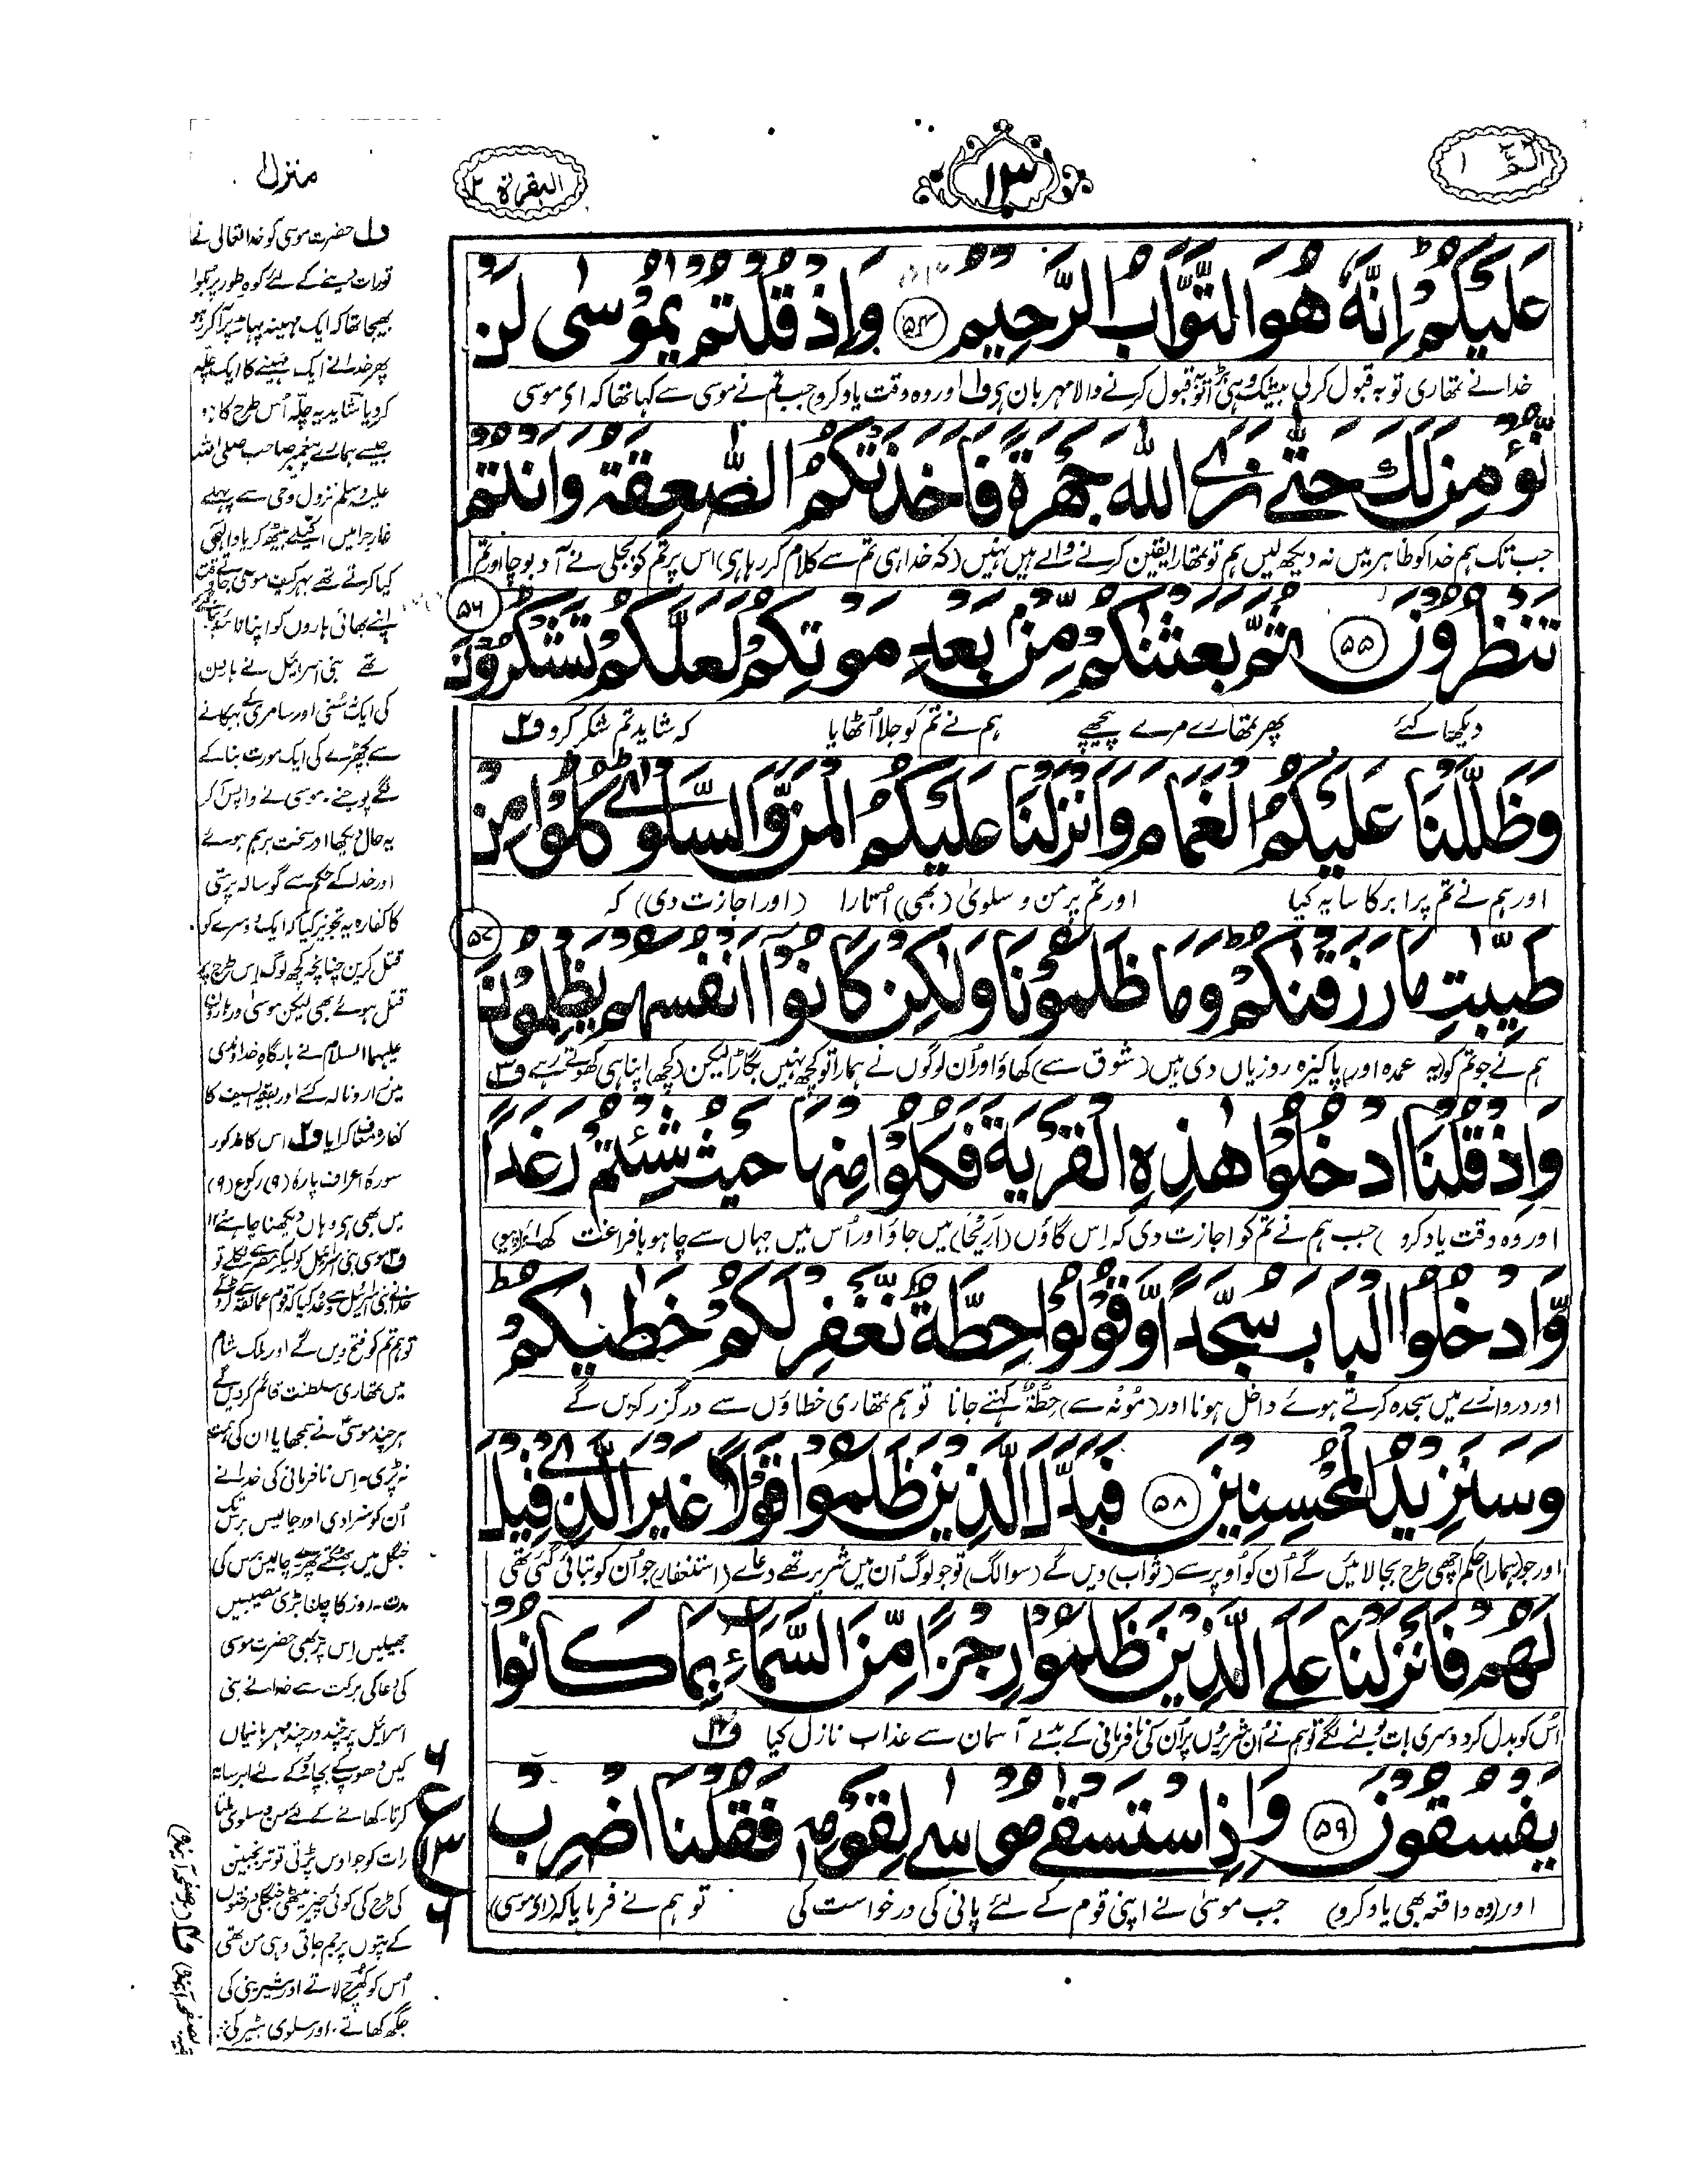 الٓمّٓ ١
١٣
البقرة ٢
منزل
عَلَيْكُمْ اِنَّهٗ هُوَ التَّوَّابُ الرَّحِيْمُ ۵۴ وَاِذْ قُلْتُمْ يٰمُوْسٰى لَنْ
خدا نے تمھاری توبہ قبول کرلی بیشک وہی بڑا توبہ قبول کرنے والا مہربان ہی ف۱ اور (وہ وقت یاد کرو) جب تم نے موسی سے کہا تھا کہ ای موسی
نُّؤْمِنَ لَكَ حَتّٰى نَرَى اللّٰهَ جَهْرَةً فَاَخَذَتْكُمُ الصّٰعِقَةُ وَاَنْتُمْ
جب تک ہم خدا کو ظاہر میں نہ دیکھ لیں ہم تو تمھارا یقین کرنے والے ہیں نہیں (کہ خدا ہی تم سے کلام کر رہا ہی) اس پر تم کو بجلی نے آ دبوچا اور تم
تَنْظُرُوْنَ ۵۵ ثُمَّ بَعَثْنٰكُمْ مِّنْۢ بَعْدِ مَوْتِكُمْ لَعَلَّكُمْ تَشْكُرُوْنَ ۵۶
دیکھا کئے پھر تمھارے مرے پیچھے ہم نے تم کو جلا اُٹھایا کہ شاید تم شکر کرو ف۲
وَظَلَّلْنَا عَلَيْكُمُ الْغَمَامَ وَاَنْزَلْنَا عَلَيْكُمُ الْمَنَّ وَالسَّلْوٰى كُلُوْا مِنْ
اور ہم نے تم پر ابر کا سایہ کیا اور تم پر من و سلویٰ (بھی) اُتارا (اور اجازت دی) کہ
طَيِّبٰتِ مَا رَزَقْنٰكُمْ وَمَا ظَلَمُوْنَا وَلٰكِنْ كَانُوْٓا اَنْفُسَهُمْ يَظْلِمُوْنَ ۵۷
ہم نے جو تم کو (یہ عمدہ اور) پاکیزہ روزیاں دی ہیں (شوق سے) کھاؤ اور اُن لوگوں نے ہمارا تو کچھ نہیں بگاڑا لیکن (کچھ) اپنا ہی کھوتے رہے ف۳
وَاِذْ قُلْنَا ادْخُلُوْا هٰذِهِ الْقَرْيَةَ فَكُلُوْا مِنْهَا حَيْثُ شِئْتُمْ رَغَدًا
اور (وہ وقت یاد کرو) جب ہم نے تم کو اجازت دی کہ اِس گاؤں (اریحا) میں جاؤ اور اُس میں جہاں سے چاہو بافراغت کھاؤ (پیو)
وَّادْخُلُوا الْبَابَ سُجَّدًا وَّقُوْلُوْا حِطَّةٌ نَّغْفِرْ لَكُمْ خَطٰيٰكُمْ
اور دروازے میں سجدہ کرتے ہوئے داخل ہونا اور (مُونہ سے) حِطَّۃٌ کہتے جانا تو ہم تمھاری خطاؤں سے درگزر کریں گے
وَسَنَزِيْدُ الْمُحْسِنِيْنَ ۵۸ فَبَدَّلَ الَّذِيْنَ ظَلَمُوْا قَوْلًا غَيْرَ الَّذِيْ قِيْلَ
اور جو (ہمارا) حکم اچھی طرح بجا لائیں گے اُن کو اُوپر سے (ثواب) دیں گے (سو الگ) تو جو لوگ اُن میں شریر تھے دعاے (استغفار) جو اُن کو بتائی گئی تھی
لَهُمْ فَاَنْزَلْنَا عَلَى الَّذِيْنَ ظَلَمُوْا رِجْزًا مِّنَ السَّمَآءِ بِمَا كَانُوْا
اُس کو بدل کر دوسری بات بولنے لگے تو ہم نے اُن شریروں پر اُن کی نافرمانی کے بدلے آسمان سے عذاب نازل کیا ف۴
يَفْسُقُوْنَ ۵۹ وَاِذِ اسْتَسْقٰى مُوْسٰى لِقَوْمِهٖ فَقُلْنَا اضْرِبْ
اور (وہ واقعہ بھی یاد کرو) جب موسیٰ نے اپنی قوم کے لئے پانی کی درخواست کی تو ہم نے فرمایا کہ (ای موسی)
۶
ع
۱۳
۶
ف۱ حضرت موسی کو خدا تعالی نے
تورات دینے کے لئے کوہ طور پر بلوا
بھیجا تھا کہ ایک مہینہ یہاں آ کر رہو
پھر خدا نے ایک مہینے کا ایک چلہ
کر دیا شاید یہ چلہ اُس طرح کا ہو
جیسے ہمارے پیغمبر صاحب صلی اللہ
علیہ وسلم نزول وحی سے پہلے
غار حرا میں اکیلے بیٹھ کر یاد الٰہی
کیا کرتے تھے بہر کیف موسی جاتے وقت
اپنے بھائی ہارون کو اپنا نائب
تھے بنی اسرائیل نے ہارون
کی ایک نہ سُنی اور سامری کے بہکانے
سے بچھڑے کی ایک مورت بنا کے
لگے پوجنے۔ موسی نے واپس آ کر
یہ حال دیکھا اور سخت برہم ہوئے
اور خدا کے حکم سے گوسالہ پرستی
کا کفارہ یہ تجویز کیا کہ ایک دوسرے کو
قتل کریں چنانچہ کچھ لوگ اِس طرح پر
قتل ہوئے بھی لیکن موسیٰ اور ہارون
علیہما السلام نے بارگاہ خداوندی
میں زار و نالہ کئے اور بقیۃ السیف کا
کفارہ معاف کرایا ف۲ اس کا مذکور
سورۂ اعراف پارۂ (۹) رکوع (۹)
میں بھی ہی وہاں دیکھنا چاہئے ۱۲
ف۳ موسی بنی اسرائیل کو لیکر مصر سے نکلے تو
خدا نے بنی اسرائیل سے وعدہ کیا کہ قوم عمالقہ سے لڑو گے
تو ہم تم کو فتح دیں گے اور ملک شام
میں تمھاری سلطنت قائم کر دیں گے
ہر چند موسیٰ نے سمجھایا ان کی ہمت
نہ پڑی۔ اِس نافرمانی کی خدا نے
اُن کو سزا دی اور چالیس برس تک
جنگل میں بھٹکتے پھرے چالیس برس کی
مدت۔ روز کا چلنا بڑی مصیبتیں
جھیلیں اِس پر بھی حضرت موسی
کی دعا کی برکت سے خدا نے بنی
اسرائیل پر چند در چند مہربانیاں
کیں دھوپ کے بچاؤ کے لئے ابر سایہ
کرتا۔ کھانے کے لئے من و سلوی ملتا
رات کو جو اوس پڑتی تو ترنجبین
کی طرح کی کوئی چیز میٹھی جنگلی درختوں
کے پتوں پر جم جاتی وہی من تھی
اُس کو کھرچ لاتے اور شیرینی کی
جگہ کھاتے۔ اور سلوی بٹیر کی